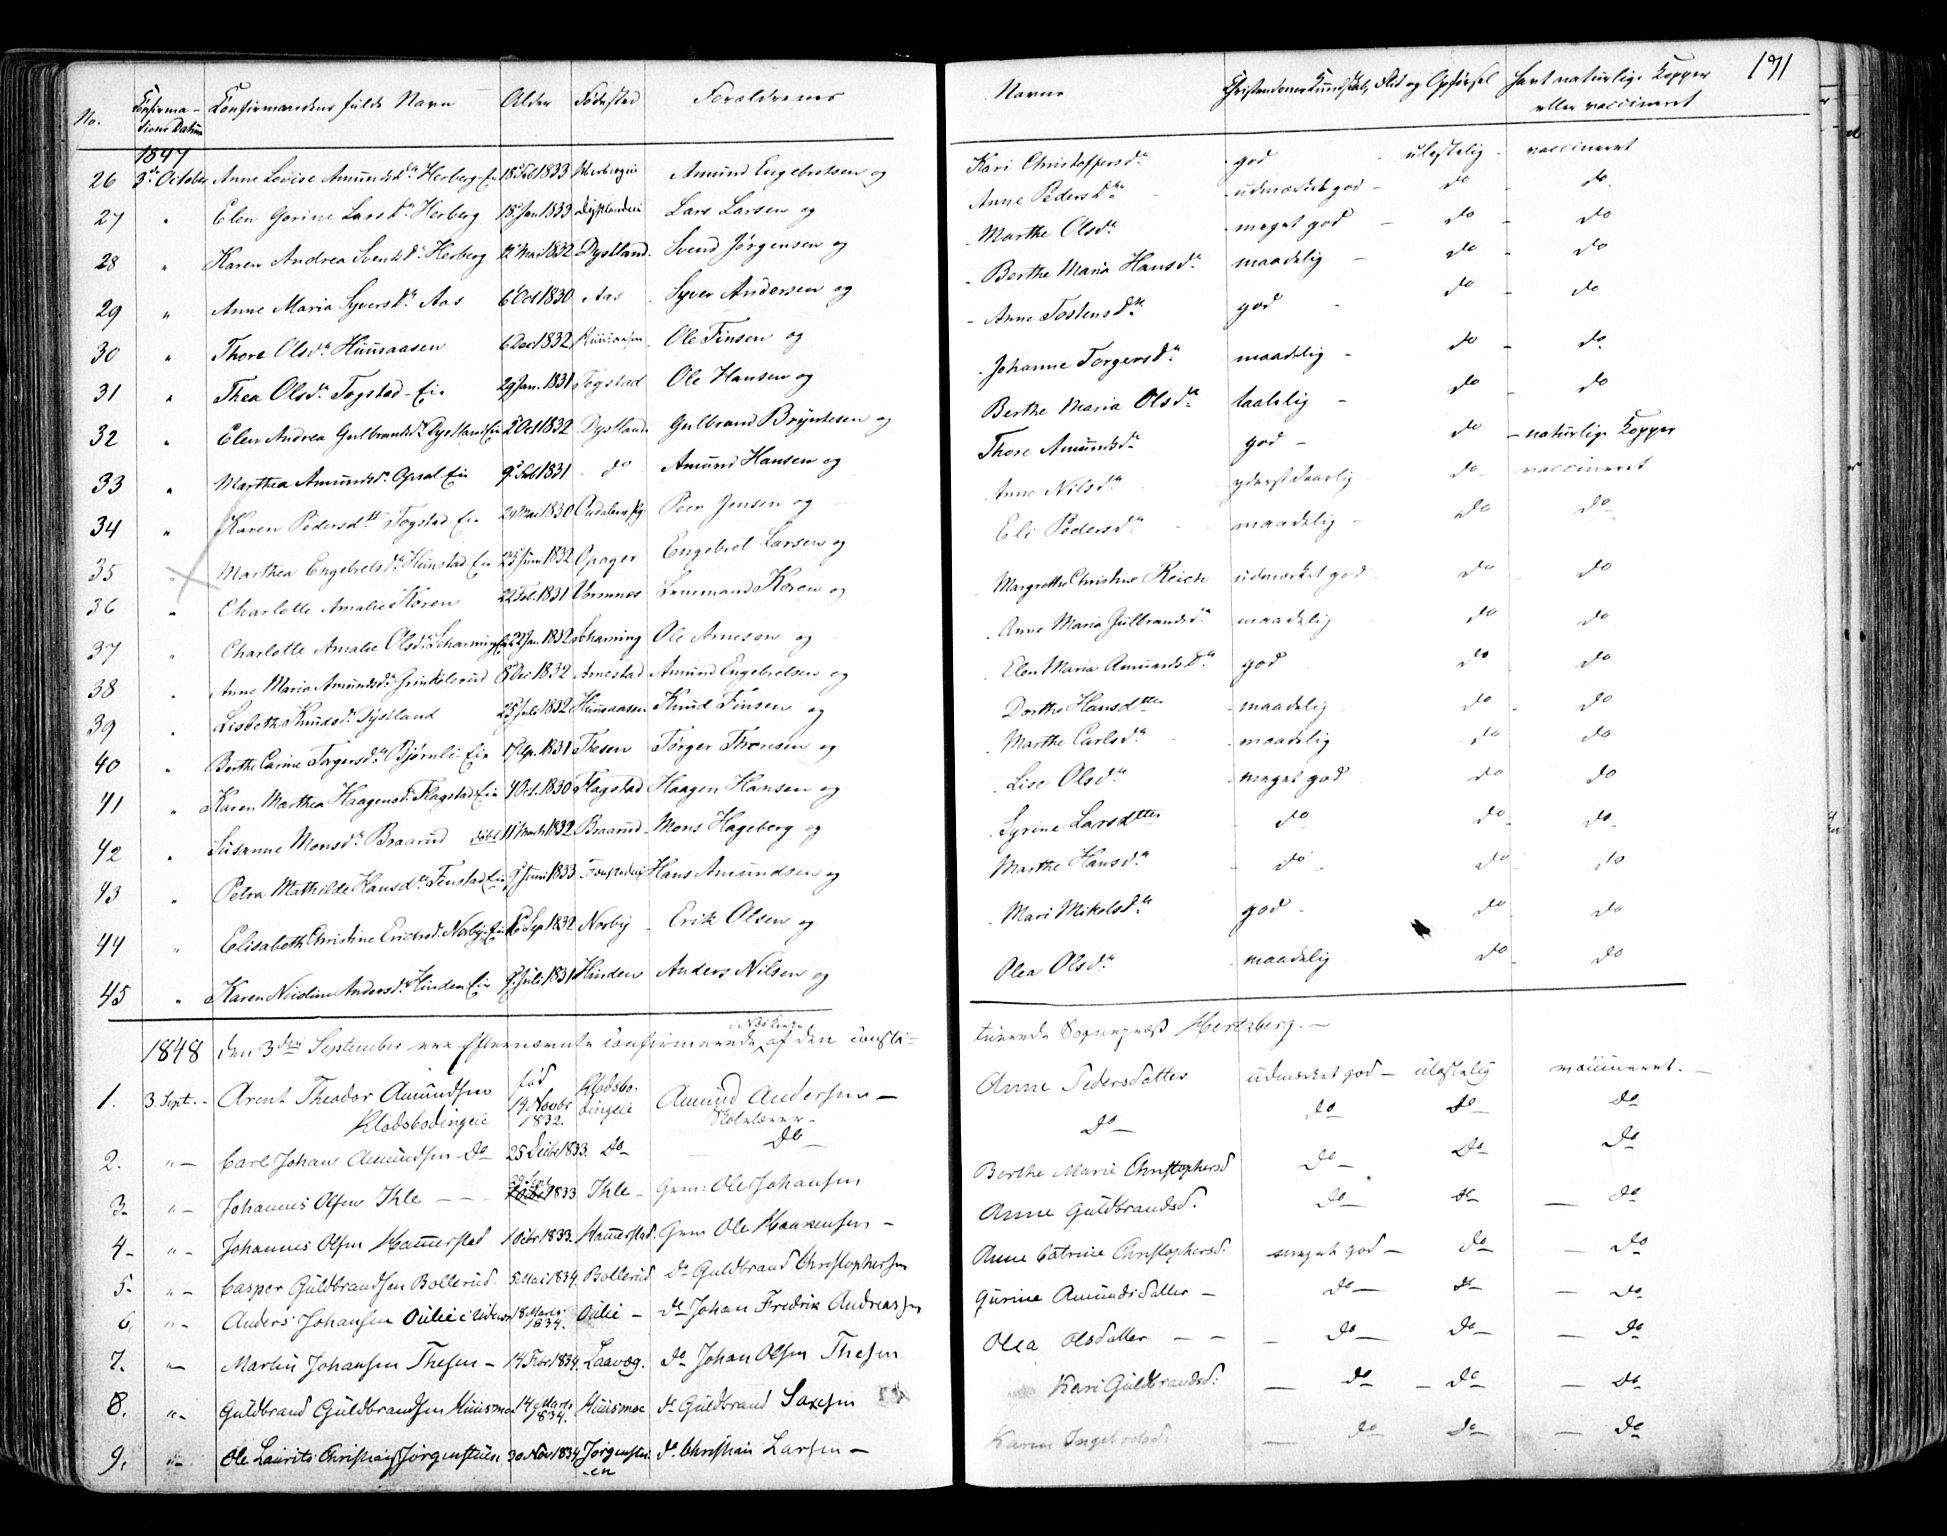 171
No. Confirmations Datum Confirmandens fulde Navn Alder Fødested Forældrenes Navne Christendomskundskab, Flid og Opførsel havt naturlige Kopper eller vaccineret
1847
26 3die October Anne Lovise Amundsdr Herberg-Eie 18 Feb 1833 Herbergeie Amund Engebretsen og Kari Christoffersdr god ulastelig vaccineret
27 " Elen Gorine Larsdr Herberg 18 Jan 1833 Lars Larsen og Anne Pedersdtr udmærket god do do
28 " Karen Andrea Svendsdr Herberg 12 Mai 1832 Dystland Svend Jørgensen og Marthe Olsdr meget god do do
29 " Anne Maria Syversdr Aas 6 Oct 1830 Aas Syver Andersen og Berthe Maria Hansdr maadelig do do
30 " Thore Olsdr Huusaasen 6 Dec 1832 Huusaasen Ole Finsen og Anne Tostensdtr god do do
31 " Thea Olsdr Togstad-Eie 29 Jan. 1831 Togstad Ole Hansen og Johanne Torgersdr maadelig do do
32 " Elen Andrea Gulbrandsdr Dystland Eie 2 Oct 1832 Dystland Gulbrand Bryntesen og Berthe Maria Olsdtr taalelig do do
33 " Marthea Amundsdr Opsal Eie 9 Feb 1831 do Amund Hansen og Thore Amundsdr god do naturlige Kopper
34 " Karen Pedersdtr Togstad Eie 24 Mai 1830 Peer Jensen og Anne Nilsdr yderst daarlig do vaccineret
35 " Marthea Engebretsdr Huustad-Eie 25 Juni 1832 Opager Engebret Larsen og Eli Pedersdr maadelig do do
36 " Charlotte Amalie Koren 22 Feb. 1831 Vormnes Lensmand Koren og Margrethe Christine Reich udmærket god do do
37 " Charlotte Amalie Olsdr Scharning Eie 22 Jan. 1832 Scharning Ole Arnesen og Anne Maria Gulbrandsdr maadelig do do
38 " Anne Maria Amundsdr Grinkelsrud 8 Dec 1832 Arnestad Amund Engebretsen og Elen Maria Amundsdr god do do
39 " Lisbeth Knudsdr Dystland 25 Juli 1832 Huusaasen Knud Finsen og Dorthe Hansdtter maadelig do do
40 " Berthe Carine Torgersdr Bjørnli-Eie 17 Apr. 1831 Thesen Torger Thoresen og Marthe Carlsdr maadelig do do
41 " Karen Marthea Haagensdr Flagstad Eie 4 Oct. 1830 Flagstad Haagen Hansen og Lise Olsdr meget god do do
42 " Susanne Monsdr Braarud døbt 11 Marts 1832 Braarud Mons Hageberg og Syrine Larsdtter do do do
43 " Petra Mathilde Hansdtr Fenstad Eie 9 Juni 1833 Hans Amundsen og Marthe Hansdr do do do
44 " Elisabeth Christine Ericksdr Norby-Eie Sep 1832 Norby Erik Olsen og Mari Mikelsdtr god do do
45 " Karen Nicoline Andersdr Hinden Eie 9 Juli 1831 Hinden Anders Nilsen og Olea Olsdr maadelig do do
1848 den 3die September ere Efternævnte confirmerede af den consti-
tuerede Sognepræst Hertzberg. —
1. 3. Sept. - Arent Theodor Amundsen Klodsbodingeie fød 14 Novbr 1832. Klodsbodingeie Amund Andersen — Skolelærer — Anne Pedersdatter udmærket god — ulastelig vaccineret. —
2. "— Carl Johan Amundsen Do 25 Decbr 1833. Do Do Do do Do do
3. "— Johannes Olsen Ihle — — 29 Sept 1833 Ihle — Gmd: Ole Johansen Berthe Marie Christophersd Do — Do Do
4. "— Johannes Olsen Hammerstad 1 Octbr 1833. Hammerstad. Gmd Ole Haakensen — Anne Guldbrandsd. Do do — Do
5. "— Casper Guldbrandsen Bollerud. 5 Mai 1834. Bollerud Do Guldbrand Christophersen Anne Catrine Christophersd. meget god — Do — Do
6. "— Anders Johansen Oulie 18 Marts 1834. Oulie — do Johan Fredrik Andreassen Gurine Amundsdatter — Do — do — Do
7. "— Martin Johansen Thesen — 14 Febr 1834. Laavæg. do Johan Olsen Thesen Olea Olsdatter — — — Do — Do — — Do
8. "— Guldbrand Guldbrandsen Huusmoe 14 Marts 1834. Huusmoe do Guldbrand Saxesen Kari Guldbrandsd: — do — do — Do
9. "— Ole Laurits Christiansen Jørgenstuen 30 Nov 1834 Jørgenstuen do Christian Larsen — Karen Ingebretsd: — do Do — Do